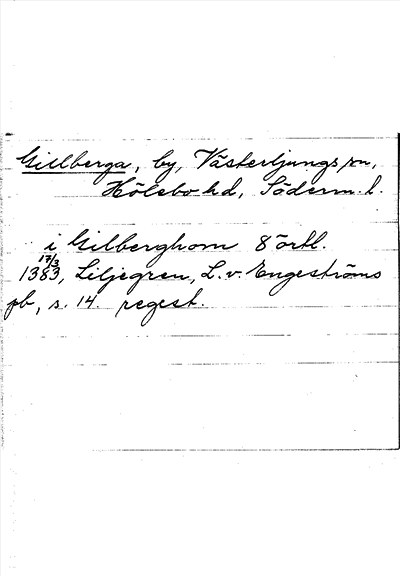 Gillberga, by, Västerljungs sn,
Hölebo hd, Söderm. l.
i Gilberghom 8 örtl.
17/3
1383, Liljegren, L. v. Engeströms
pb, s. 14 regest.